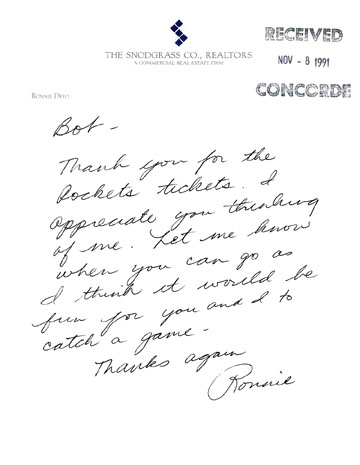 THE SNODGRASS CO., REALTORS
A COMMERCIAL REAL ESTATE FIRM
RECEIVED
NOV - 8 1991
CONCORDE
RONNIE DEYO
Bob -
Thank you for the
Rockets tickets. I
appreciate you thinking
of me. Let me know
when you can go as
I think it would be
fun for you and I to
catch a game -
Thanks again
Ronnie